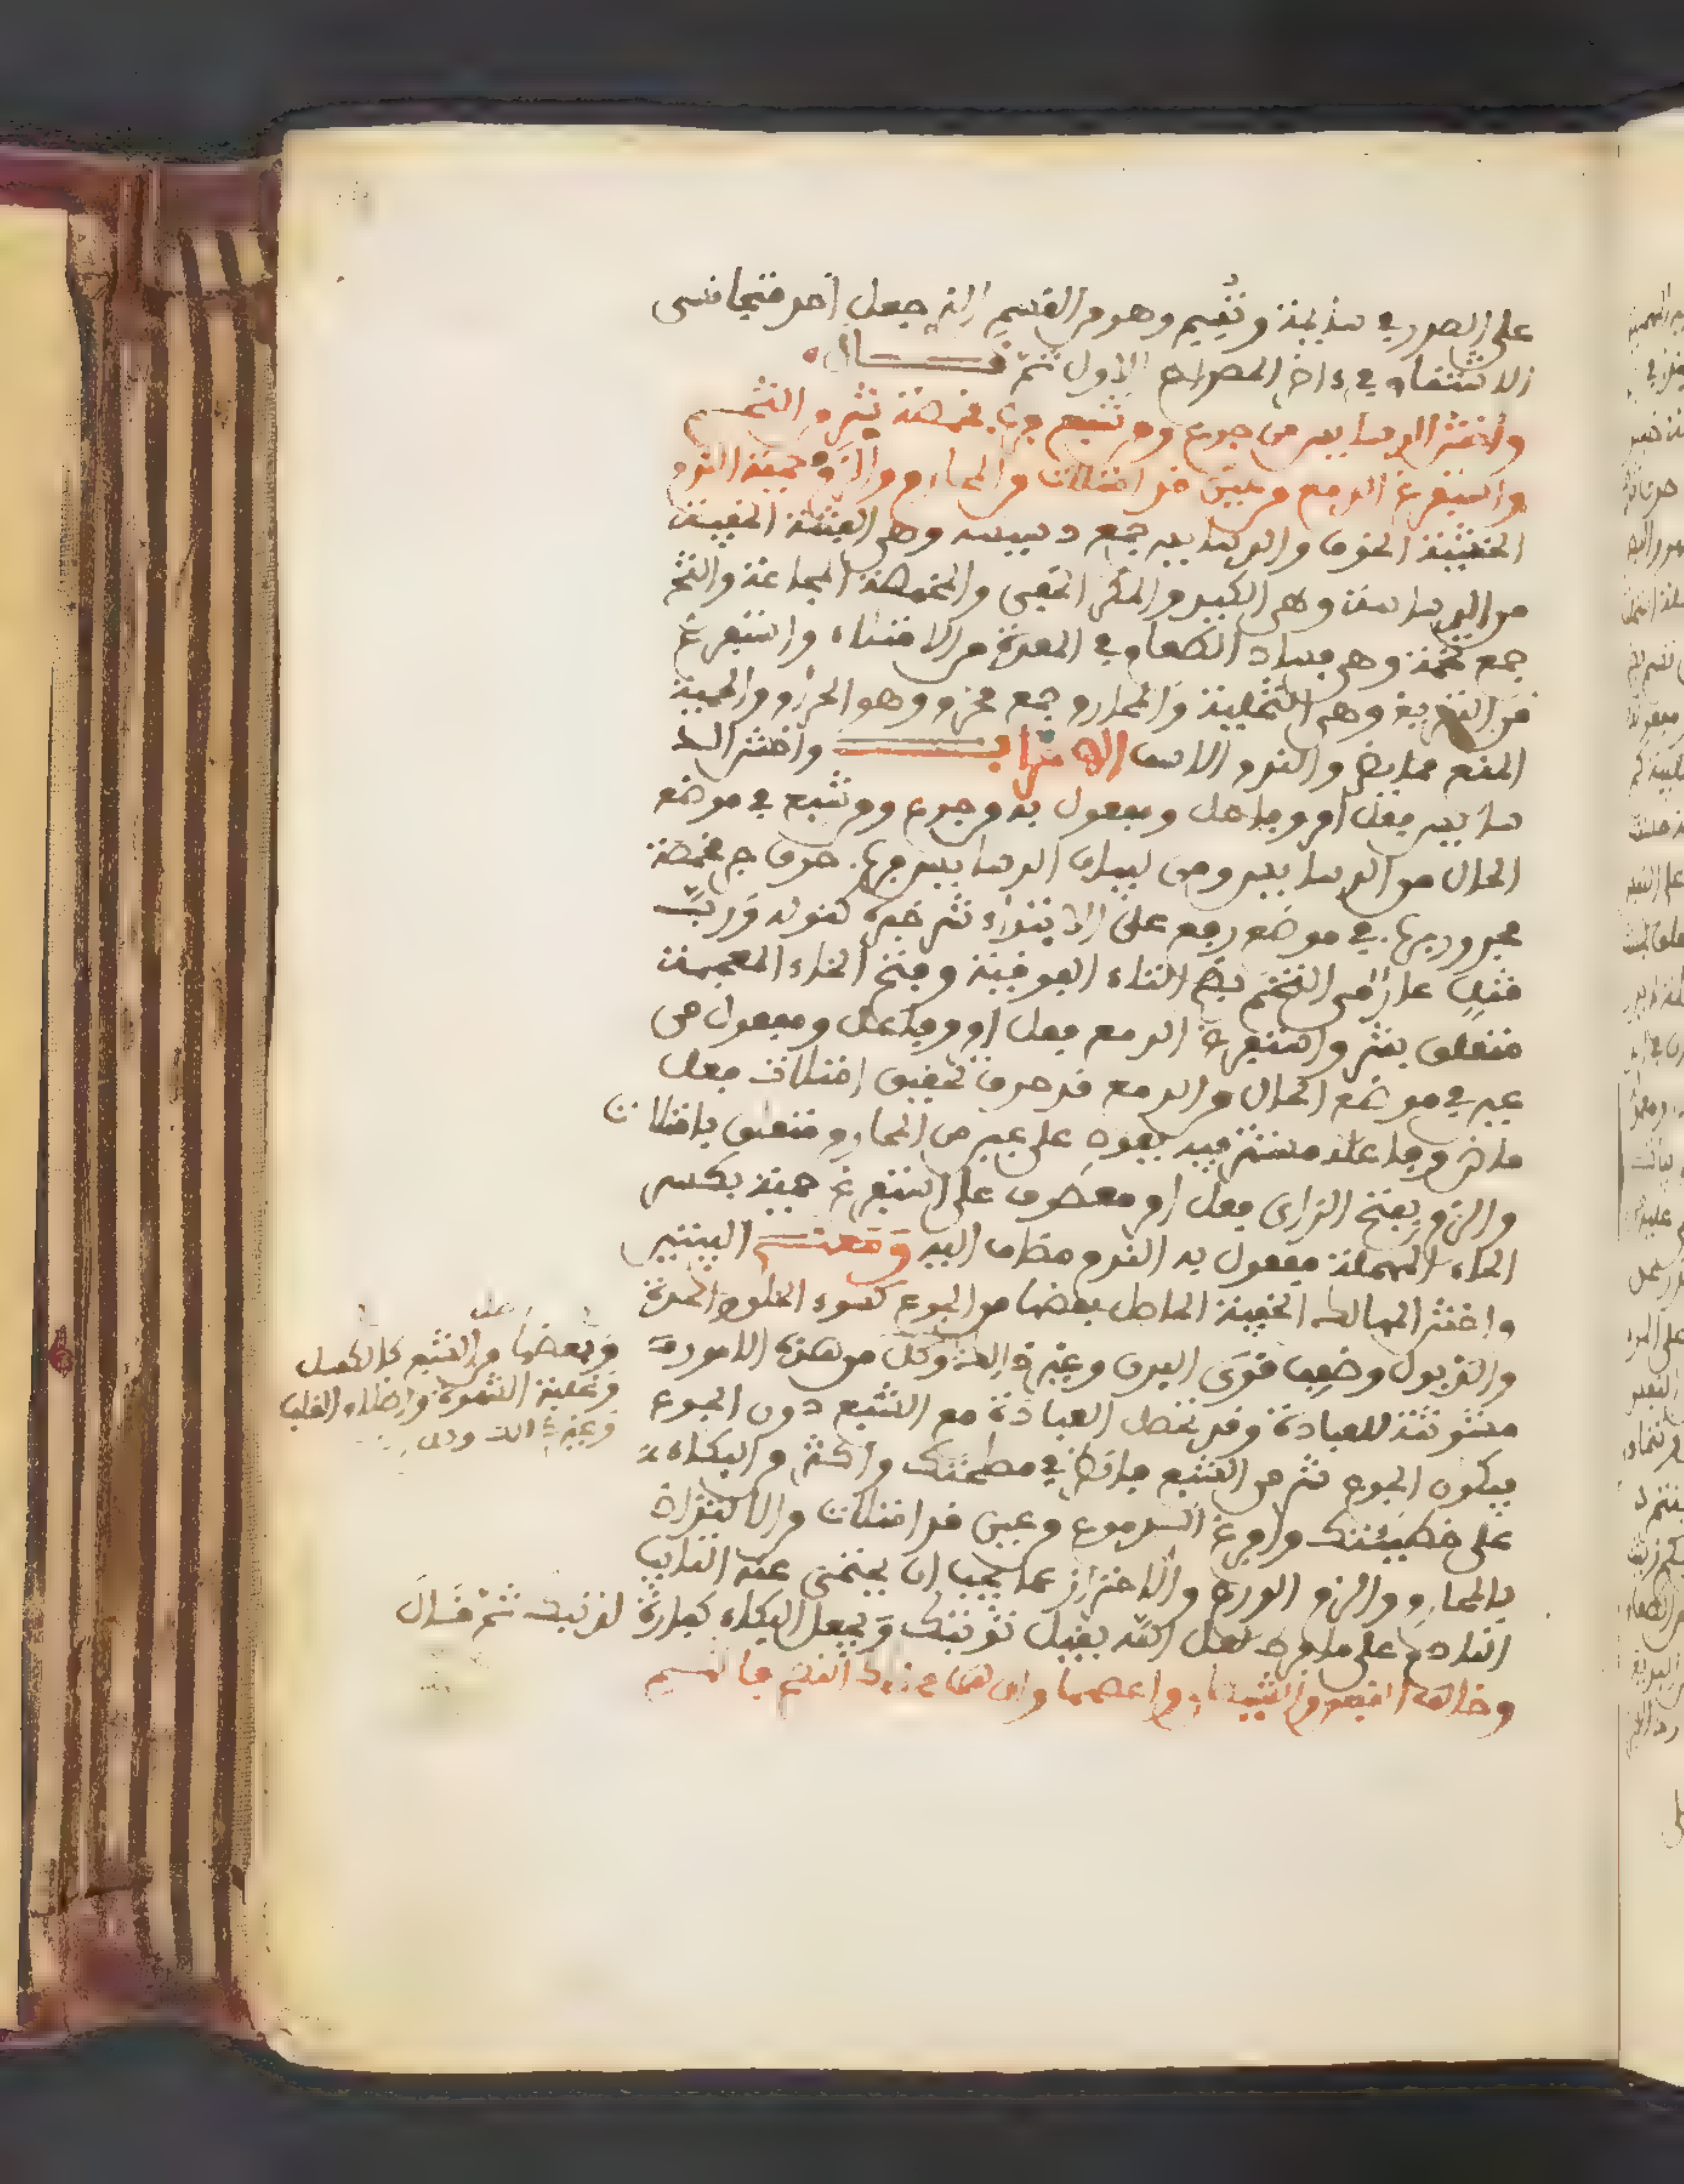 على الصدر في سذيمة وتقيم وهو من القسم الذي جعل احد متجانسي
الاشتقاق في ءاخر المصراع الاول ثم قــــال
واخش الدسايس من جوع ومن شبع فرب مخمصة شر من التخم
واستفرغ الدمع من عين قد امتلات من المحارم والزم حمية الندم
الخشية الخوف والدسايس جمع دسيسة وهي الفتنة الخفية
من الدساسة وهي الكيد والمكر الخفي والمخمصة المجاعة والتخم
جمع تخمة وهي فساد الطعام في المعدة من الامتلاء واستفرغ
من التفريغ وهي التخلية والمحارم جمع محرم وهو الحرام والحمية
المنع مما يضر والندم الاسف الاعراب واخش الد
سايس فعل امر وفاعل ومفعول به من جوع ومن شبع في موضع
الحال من الدسايس ومن لبيان الدسايس فرب حرف جر مخمصة
مجرور برب في موضع رفع على الابتداء شر خبره كقوله ورب
قتل عار من التخم بضم التاء الفوقية وفتح الخاء المعجمة
متعلق بشر واستفرغ الدمع فعل امر وفاعل ومفعول من
عين في موضع الحال من الدمع قد حرف تحقيق امتلات فعل
ماض وفاعله مستتر فيه يعود على عين من المحارم متعلق بامتلات
والزم بفتح الزاي فعل امر معطوف على استفرغ حمية بكسر
الحاء المهملة مفعول به الندم مضاف اليه ومعنى البيتين
واخش المهالك الخفية الحاصل بعضها من الجوع كسوء الخلق والحدة
والذبول وضعف قوى البدن وغير ذلك وكل من هذه الامور
وبعضها من الشبع كالكسل
وغلبة الشهوة واظلام القلب
وغير ذلك
مشوشة للعبادة وقد تحصل العبادة مع الشبع دون الجوع
فيكون الجوع شر من الشبع فانظر في مصلحتك واكثر من البكاء
على خطيئتك وافرغ الدموع من عين قد امتلات من الاكتراث
بالمحارم والزم الورع والاحتراز عما يجب ان يحتمي عنه التايب
النادم على ما فرط لعل الله يقبل توبتك ويجعل البكاء كفارة لذنبك ثم قــال
وخالف النفس والشيطان واعصهما وان هما محضاك النصح فاتهم